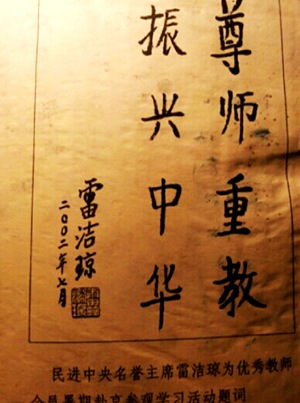 尊师重教
振兴中华
雷洁琼
二〇〇二年七月
民进中央名誉主席雷洁琼为优秀教师
会员暑期赴京参观学习活动题词